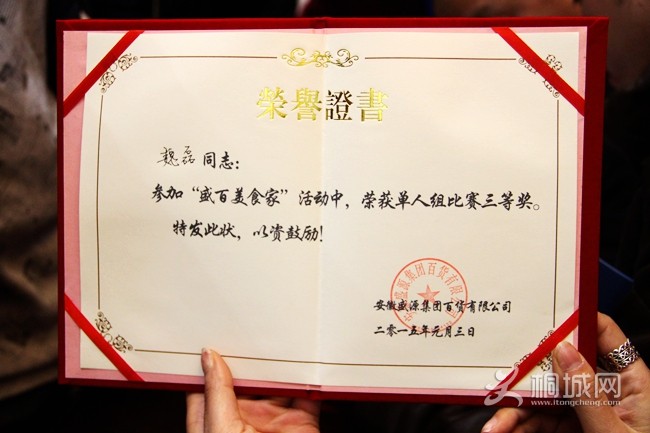 榮譽證書
魏磊同志：
参加“盛百美食家”活动中，荣获单人组比赛三等奖。
特发此状，以资鼓励！
安徽盛源集团百货有限公司
安徽盛源集团百货有限公司
二零一五年元月三日
桐城网
www.itongcheng.com